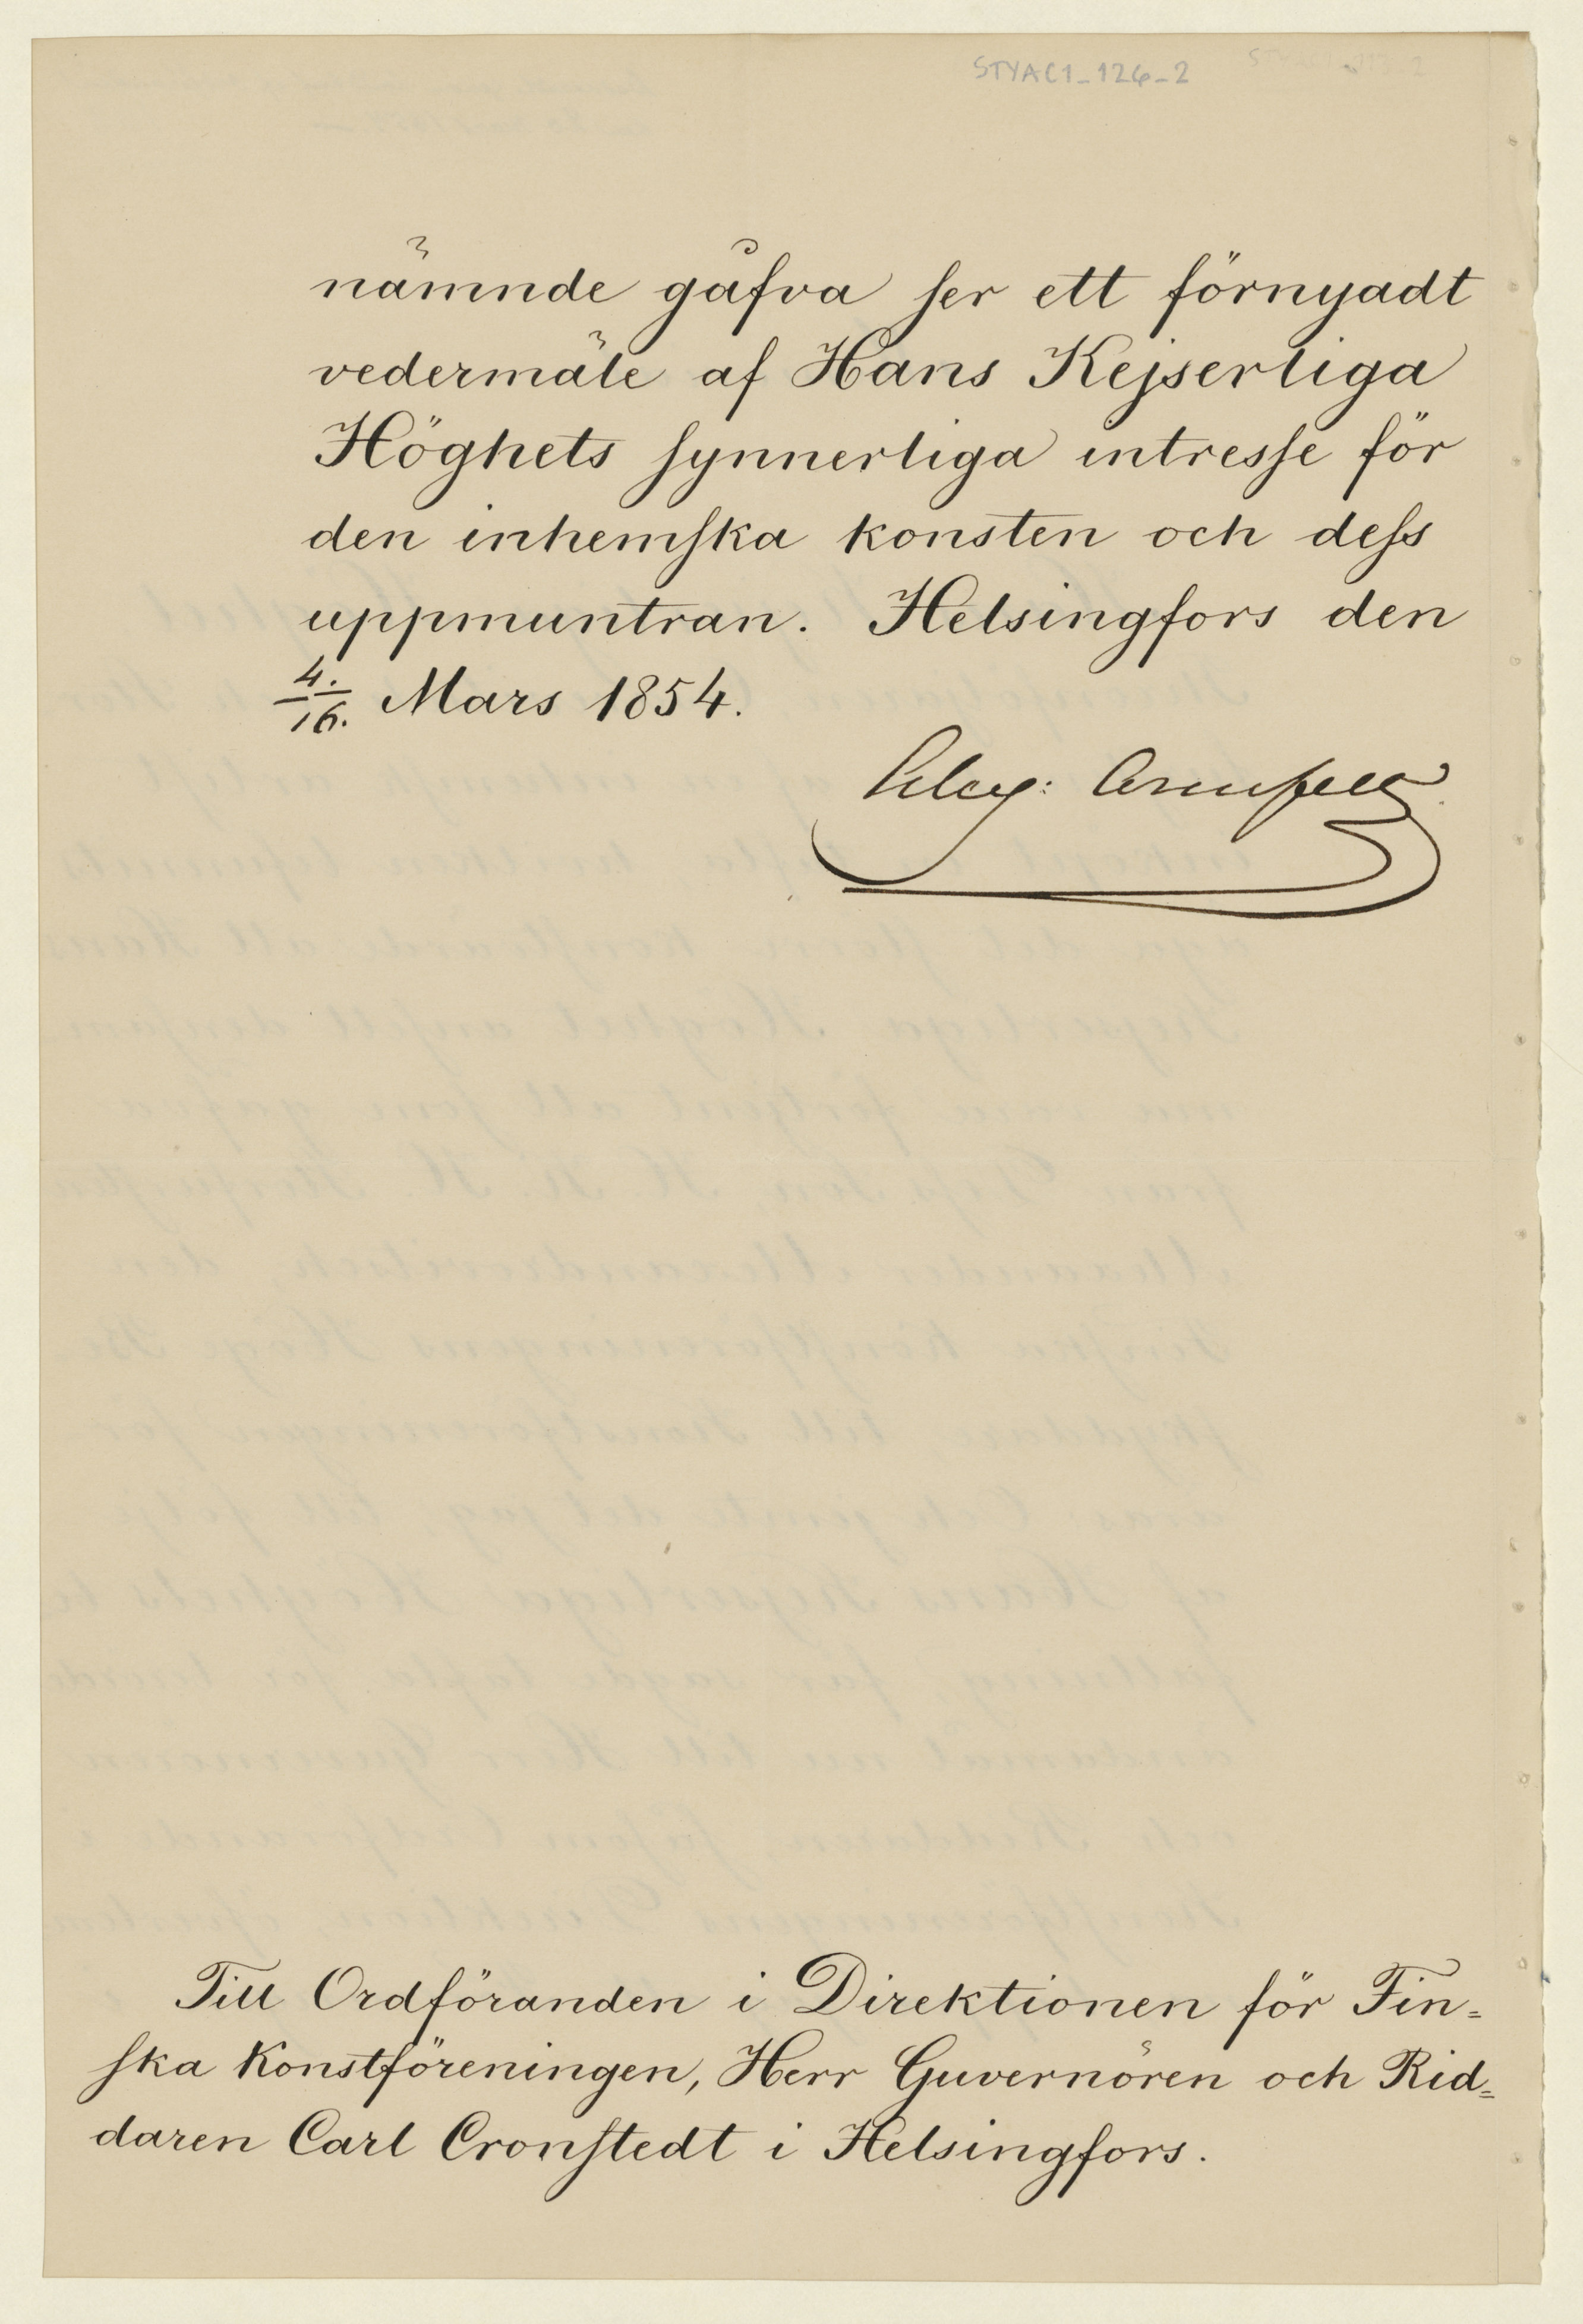 STYAC1_126_2
nämnde gåfva ser ett förnyadt
vedermäle af Hans Kejserliga
Höghets synnerliga intresse för
den inhemska konsten och dess
uppmuntran. Helsingfors den
4./16. Mars 1854.
Alex: Armfelt
Till Ordföranden i Direktionen för Fin=
ska Konstföreningen, Herr Guvernören och Rid=
daren Carl Cronstedt i Helsingfors.